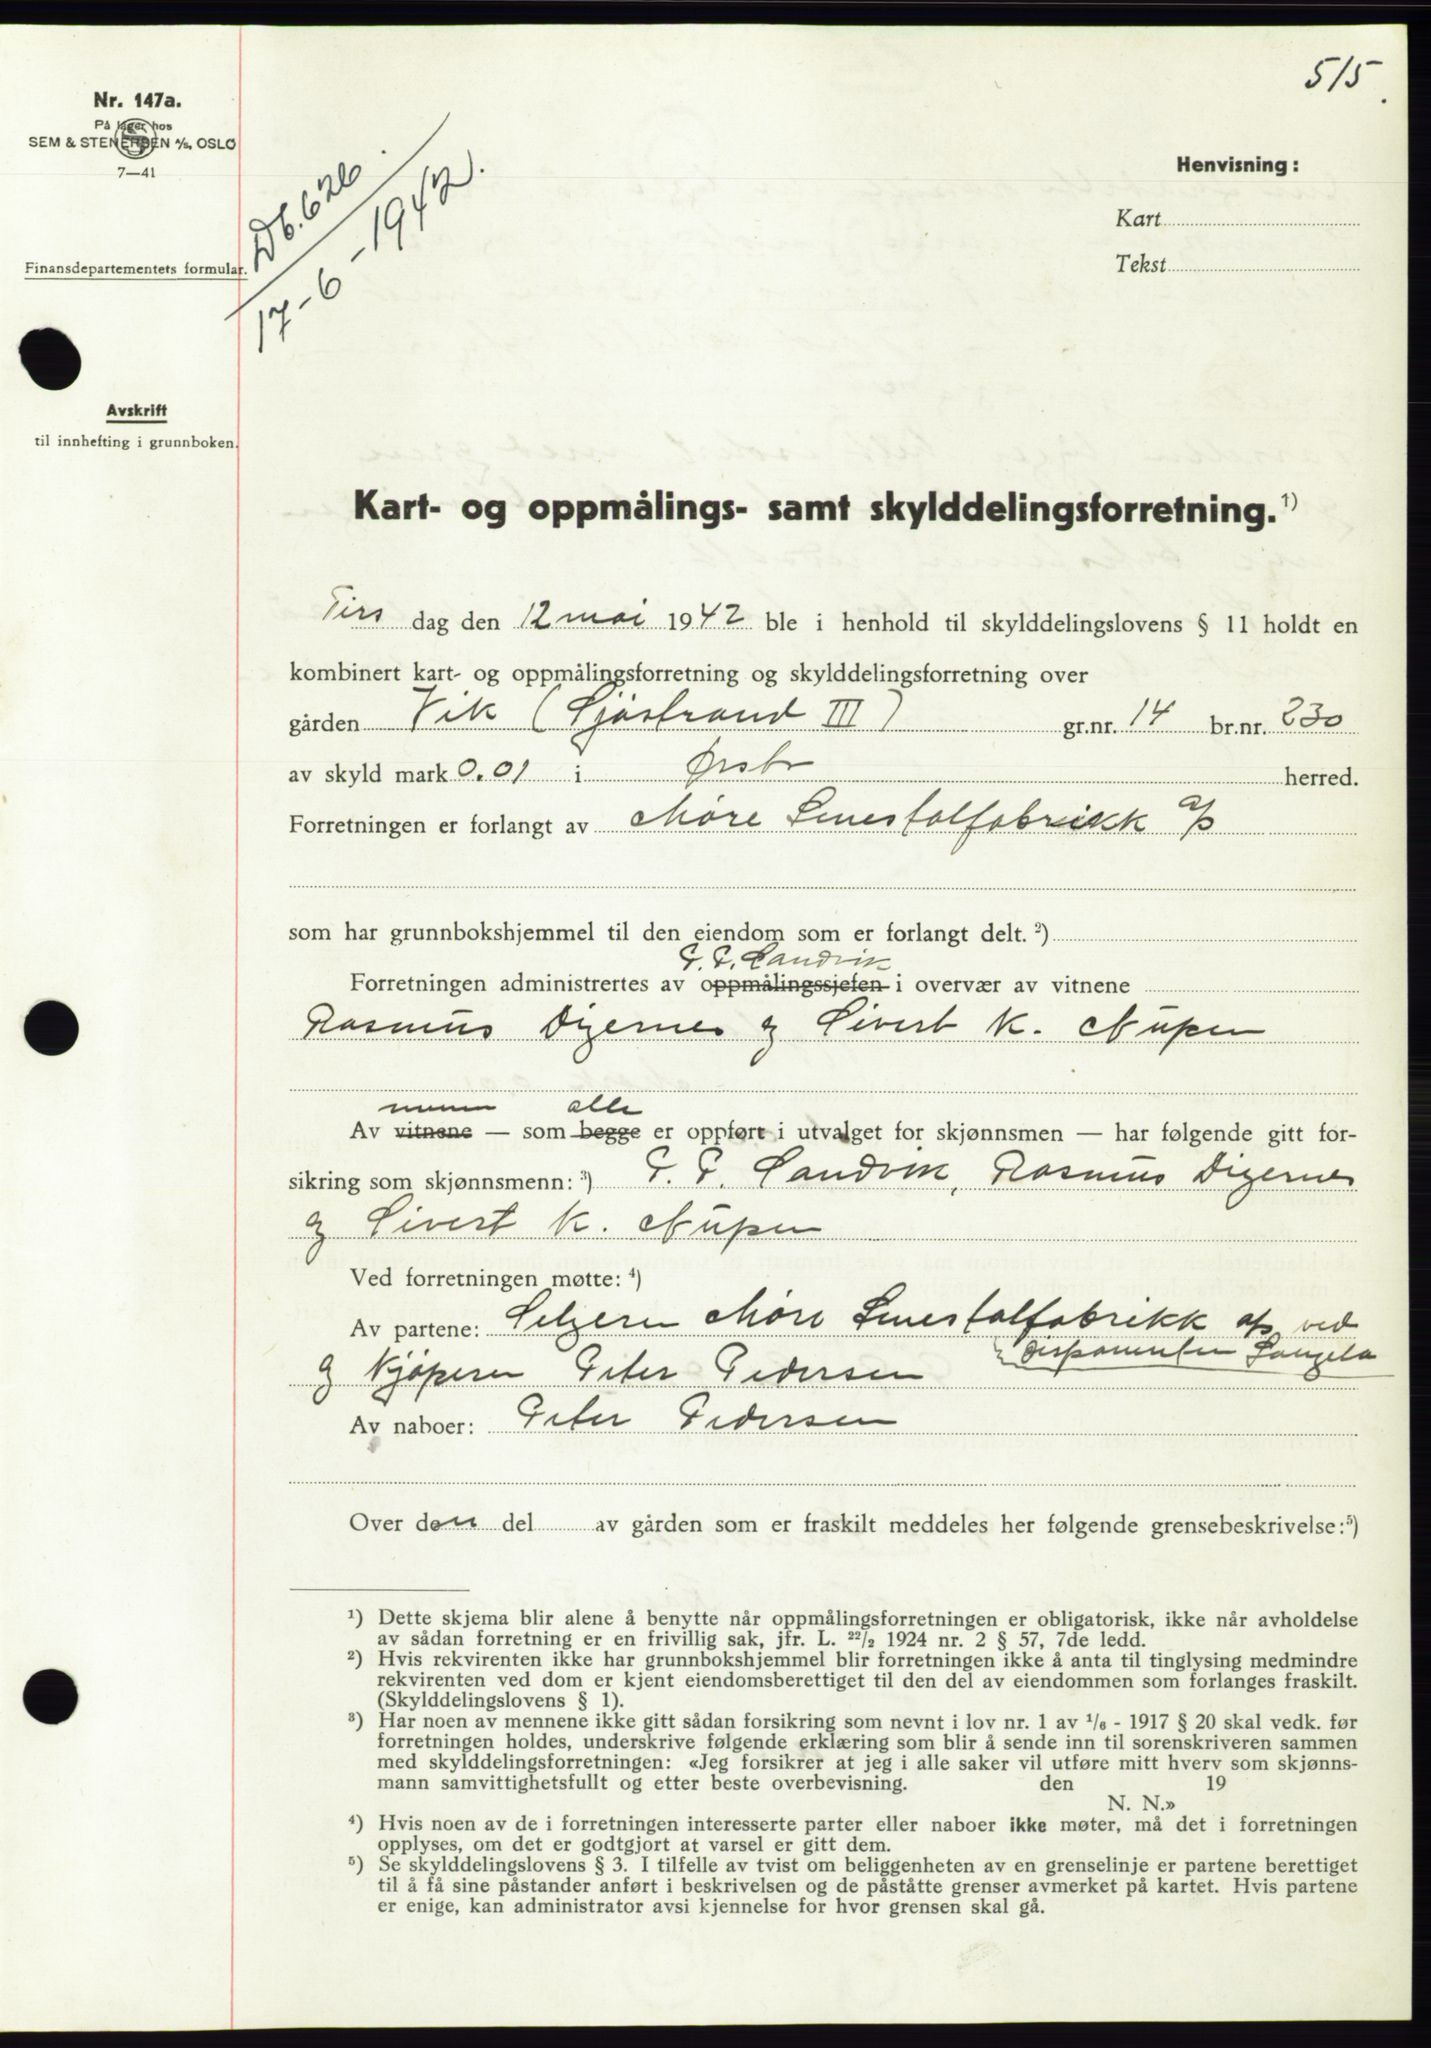 515.
Nr. 147a.
På lager hos
SEM & STENERSEN A/S, OSLO
7—41
Db. 626.
17-6-1942.
Henvisning:
Kart
Tekst
Finansdepartementets formular.
Avskrift
til innhefting i grunnboken.
Kart- og oppmålings- samt skylddelingsforretning.¹)
Tirs dag den 12 mai 1942 ble i henhold til skylddelingslovens § 11 holdt en
kombinert kart- og oppmålingsforretning og skylddelingsforretning over
gården Vik (Sjöstrand III) gr.nr. 14 br.nr. 230
av skyld mark 0.01 i Ørsta herred.
Forretningen er forlangt av Møre Lenestolfabrikk a/s
som har grunnbokshjemmel til den eiendom som er forlangt delt. ²)
P. P. Sandvik
Forretningen administrertes av oppmålingssjefen i overvær av vitnene
Rasmus Digernes og Sivert K. Nupen
menn alle
Av vitnene — som begge er oppført i utvalget for skjønnsmen — har følgende gitt for-
sikring som skjønnsmenn: ³) P. P. Sandvik, Rasmus Digernes
og Sivert K. Nupen
Ved forretningen møtte: ⁴)
Av partene: Selgeren Møre Lenestolfabrikk a/s ved
disponenten
og Kjöperen Peter Pedersen
Av naboer: Peter Pedersen
Over den del av gården som er fraskilt meddeles her følgende grensebeskrivelse: ⁵)
¹) Dette skjema blir alene å benytte når oppmålingsforretningen er obligatorisk, ikke når avholdelse
av sådan forretning er en frivillig sak, jfr. L. ²²/₂ 1924 nr. 2 § 57, 7de ledd.
²) Hvis rekvirenten ikke har grunnbokshjemmel blir forretningen ikke å anta til tinglysing medmindre
rekvirenten ved dom er kjent eiendomsberettiget til den del av eiendommen som forlanges fraskilt.
(Skylddelingslovens § 1).
³) Har noen av mennene ikke gitt sådan forsikring som nevnt i lov nr. 1 av ¹/₆ - 1917 § 20 skal vedk. før
forretningen holdes, underskrive følgende erklæring som blir å sende inn til sorenskriveren sammen
med skylddelingsforretningen: «Jeg forsikrer at jeg i alle saker vil utføre mitt hverv som skjønns-
mann samvittighetsfullt og etter beste overbevisning. den 19
N. N.»
⁴) Hvis noen av de i forretningen interesserte parter eller naboer ikke møter, må det i forretningen
opplyses, om det er godtgjort at varsel er gitt dem.
⁵) Se skylddelingslovens § 3. I tilfelle av tvist om beliggenheten av en grenselinje er partene berettiget
til å få sine påstander anført i beskrivelsen og de påståtte grenser avmerket på kartet. Hvis partene
er enige, kan administrator avsi kjennelse for hvor grensen skal gå.